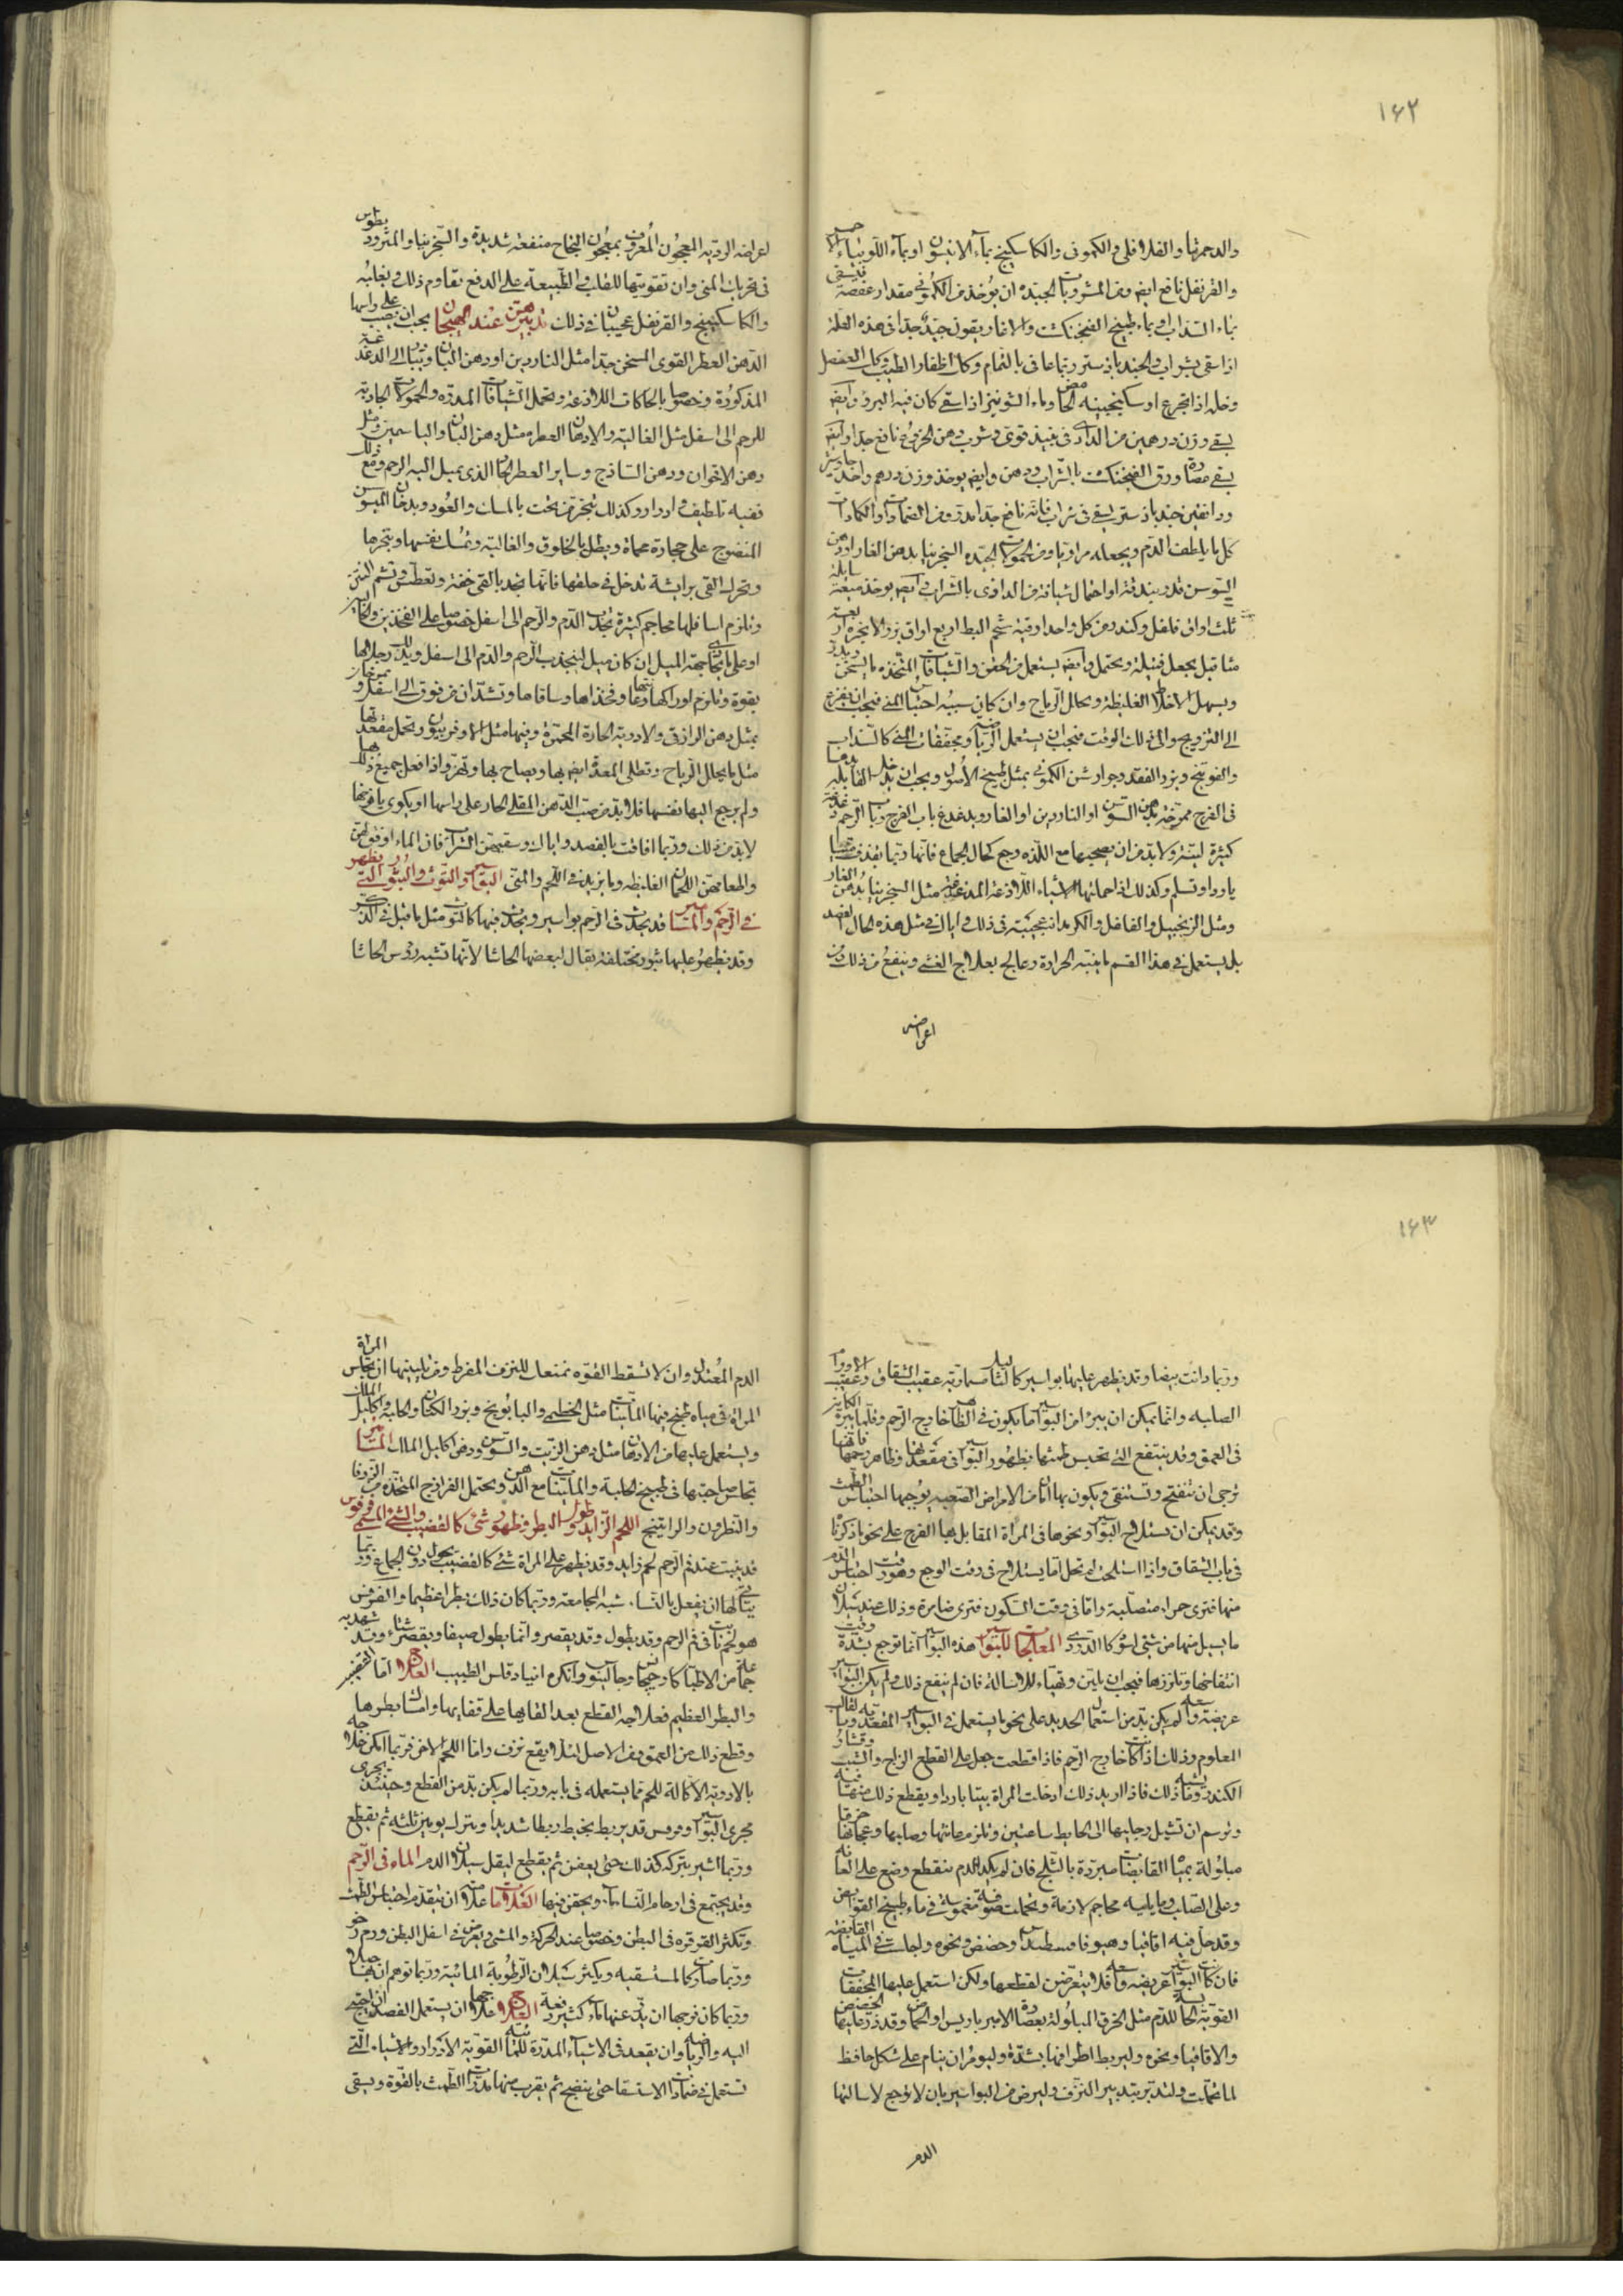 ١٦٢
والدحمرثا والفلافلى والكمونى والكاسكبينج بماء الانيسون او بماء اللوبياء
والقرنفل نافع ايضا ومن المشروبات الجيدة ان يؤخذ من الكمونى مقدار عفصة فيسقى
بماء السذاب او بماء طبيخ الفنجنكشت والاغاريقون جيد جدا فى هذه العلة
اذا سقى بشراب والجندبادستر ربما عافى بالتمام وكل اظفار الطيب وكل العنصل
وخله اذا تجرع او سكنجبينه الحامض وماء الشونيز اذا سقى كان فيه البرؤ وايضا
يسقى وزن درهمين من الدادى فى نبيذ قوى وشرب دهن الخروع نافع جدا وايضا
يسقى عصارة ورق الفنجنكشت بالشراب ودهن وايضا يؤخذ وزن درهم واحد جاوشير
ودانقين جندبادستر يسقى فى شراب فانه نافع جدا مدر ومن الضمادات والكمادات
كل ما يلطف الدم ويجعله مراريا ومن الحمولات الجيدة السجزنيا بدهن الغار او دهن
السوسن قدر بندقة او احتمال شيافة من الدادى بالشراب وايضا يؤخذ ميعة سايلة
ثلث اواق فلفل وكندر من كل واحد اوقية شحم البط اربع اواق بزر الانجرة اربعة
مثاقيل يجعل فتيلة ويحتمل وايضا يستعمل من الحقن والشيافات المتخذة ما يسخن ويدر
ويسهل الاخلاط الغليظة ويحلل الرياح وان كان سببه احتباس المنى فيجب ان يفزع
الى التزويج والى ذلك الوقت فيجب ان يستعمل الرياضة ومجففات المنى كالسذاب
والفوتنج وبزر الفقد وجوارشن الكمونى بمثل طبيخ الاصول ويجب ان تدخل القابلة يدها
فى الفرج ممرخة بدهن السوسن او الناردين او الغار وتدغدغ باب الفرج وباب الرحم دغدغة
كثيرة ليستر ولا بد من ان يصحبها مع اللذة وجع كحال الجماع فانها ربما يقذف منيا
باردا وتسلم وكذلك اذا حملتها الاشياء اللذاعة المدغدغة مثل السجزنيا بدهن الغار
ومثل الزنجبيل والفلفل والكرمدانه عجيبة فى ذلك واياك فى مثل هذه الحال الفصد
بل يستعمل فى هذا القسم ما ينبه الحرارة وعالج بعلاج الغشى وينفع من ذلك ومن
اعراضه
اعراضه الردية المعجون المعروف بمعجون النجاح منفعة شديدة والسجزنيا والمثروديطوس
فى تحريك المنى وان تقويتها للقلب والطبيعة على الدفع تقاوم ذلك ويغلبه
والكاسكبينج والقرنفل عجيبان فى ذلك تدبيرهن عند الهيجان يجب ان يصب على راسها
الدهن العطر القوى المسخن جدا مثل الناردين او دهن البان ويبادر الى الدغدغة
المذكورة وخصوصا بالحكاكات اللاذعة وتحمل الشيافات المدرة والحمولات الجاذبة
للرحم الى اسفل مثل الغالية والادهان العطرة مثل دهن البان والياسمين ومثل
دهن الاقحوان ودهن الساذج وساير العطر الحار الذى يميل اليه الرحم ومع ذلك
ففيه تلطيف وادرار وكذلك تبخر من تحت بالمسك والعود وبدخان الميسوسن
المنضوح على حجارة محماة ويطلى بالخلوق والغالية وتمسك نفسها ومنخرها
وتحرك القى بريشة تدخل فى حلقها فانها تجد بالقى خفة وتعطس وتشم المنتن
وتلزم اسافلها محاجم كثيرة تجذب الدم والرحم الى اسفل خصوصا على الفخذين والحالبين
او على ما يحاذى جهة الميل ان كان ميل لينجذب الرحم والدم الى اسفل ويدلك رجلاها
بقوة وتلزم اوراكها وعانتها وفخذاها وساقاها وتشد ان من فوق الى اسفل وتمرخان
بمثل دهن الرازقى والادوية الحارة المحمرة وفيها مثل الاوفربيون ويحمل مقعدتها
مثل ما يحلل الرياح وتطلى المعدة ايضا بها ويصاح بها وتهز واذا فعل جميع ذلك
ولم يرجع اليها نفسها فلابد من صب الدهن المغلى الحار على راسها او يكوى يافوخها
لابد من ذلك وربما افاقت بالفصد واياك وسقيهن الشراب فان الماء اوفق لهن
واطعامهن اللحمان الغليظة وما يزيد فى اللحم والمنى البواسير والتوث والبثور التى تظهر
فى الرحم والمسامير قد يحدث فى الرحم بواسير ويحدث فيها كالتوت مثل ما قيل فى الذكر
وقد يظهر عليها بثور مختلفة يقال لبعضها الحاشا لانها تشبه رؤس الحاشا
١٦٣
وربما دانت بيضا وقد يظهر عليها بواسير كالثآليل مسمارية عقيب الشقاق وعقيب الاورام
الصلبة وانما يمكن ان يبرأ من البواسير ما يكون فى الظاهر خارج الرحم وقلما يبرأ الكاين
فى العمق وقد ينتفع التى تحبس طمثها بظهور البواسير فى مقعدتها وظاهر رحمها فانها
ترجى ان تنفتح وتستنقى ويكون بها امان من الامراض الصعبة يوجبها احتباس الطمث
وقد يمكن ان يستلاح البواسير ونحوها فى المراة المقابل بها الفرج على نحو ما ذكرنا
فى باب الشقاق واذا استلحت لم تخل اما يستلاح فى وقت الوجع وهو وقت احتباس الدم
منها فترى حمراء متصلبة واما فى وقت السكون فترى ضامرة وذلك عند سيلان
ما يسيل منها من شئ اسود كالدردى المعالجات للبواسير هذه البواسير انما توجع بشدة وقت
انتفاخها وتلزرها فيجب ان يلين وتهيأ للاسالة فان لم ينفع ذلك ولم يكن البواسير
عريضة واسعة لم يكن بد من استعمال الحديد على نحو ما يستعمل فى البواسير المقعدية بالقالب
المعلوم وذلك اذا كانت خارج الرحم فاذا قطعت جعل على القطع الزاج والشب وقشار
الكندر وما يشبه ذلك فاذا اريد ذلك ادخلت المراة بيتا باردا ويقطع ذلك منها
وترسم ان تشيل رجليها الى الحايط ساعتين وتلزم عانتها وصلبها وعجانها خرقا
مبلولة بمياه القابضات مبردة بالثلج فان لم يكد الدم ينقطع وضع على العانة
وعلى الصلب وما يليه محاجم لازمة وتحملت صوفة مغموسة فى ماء طبيخ القوابض
وقد حل فيه اقاقيا وهيوفاقسطيداس وحضض ونحوه واجلست فى المياه القابضة
فان كانت البواسير عريضة واسعة فلا يتعرضن لقطعها ولكن استعمل عليها المجففات
القوية الحابسة للدم مثل الخرق المبلولة بعصارة الامبرباريس او الحماض وقد ذر عليها الحضض
والاقاقيا ونحوه وليربط اطرافها بشدة وليومران ينام على شكل حافظ
لما تحملت ولتدبر بتدبير النزف وليرض من البواسير بان لا توجع لاسالتها
الدم
الدم المعتدل وان لا تسقط القوة بمنعك للنزف المفرط ومن تليينها ان تجلس المراة
المراة فى مياه طبخ فيها الملينات مثل الخطمى والبابونج وبزر الكتان والحلبة واكليل الملك
ويستعمل عليها من الادهان مثل دهن الزيت والسوسن ودهن اكليل الملك المسامير
تجلس صاحبتها فى طبيخ الحلبة والملينات مع الدهن ويحتمل الفرازج المتخذة من الزوفا
والنطرون والراتينج اللحم الزايد وطول البظر وظهور شئ كالقضيب والشئ المسمى قرقوس
قد ينبت عند فم الرحم لحم زايد وقد يظهر على المراة شئ كالقضيب يحول دون الجماع وربما
يتأتى لها ان يفعل بالنساء شبه المجامعة وربما كان ذلك بظرا عظيما والقرقوس
هو لحم نابت فى فم الرحم وقد يطول وقد يقصر وانما يطول صيفا ويقصر شتاء وقد شهد به
جماعة من الاطباء كارخيجانس وجالينوس وانكره انبادقلس الطبيب العلاج اما القضيب
والبظر العظيم فعلاجه القطع بعد القايها على قفايها وامساك بظرها
وقطع ذلك من العمق ومن الاصل لئلا يقع نزف واما اللحم الاخر فربما امكن علاجه
بالادوية الاكالة للحم مما يستعمله فى بابه وربما لم يكن بد من القطع وحينئذ يجرى
مجرى البواسير وقرقوس قد يربط بخيط ربطا شديدا ويترك يومين ثلثه ثم يقطع
وربما اشير بتركه كذلك حتى يعفن ثم يقطع ليقل سيلان الدم الماء فى الرحم
وقد يجتمع فى ارحام النساء ماء ويحقن فيها العلامات علامته ان يتقدم احتباس الطمث
وتكثر القرقرة فى البطن وخصوصا عند الحركة والمشى ويعرض فى اسفل البطن ورم رخو
وربما صارت كالمستسقية ويكثر سيلان الرطوبة المائية وربما توهم ان بها حبلا
وربما كان فرجها ان يذر عنها ماء كثير دفعة العلاج علاجها ان يستعمل الفصد ان احتيج
اليه والرياضة وان يقعد فى الاشياء المدرة للمائية القوية الادرار والاشياء التى
تستعمل فى ضمادات الاستسقا حتى ينضج ثم يقرب منها مدرات الطمث بالقوة ويسقى